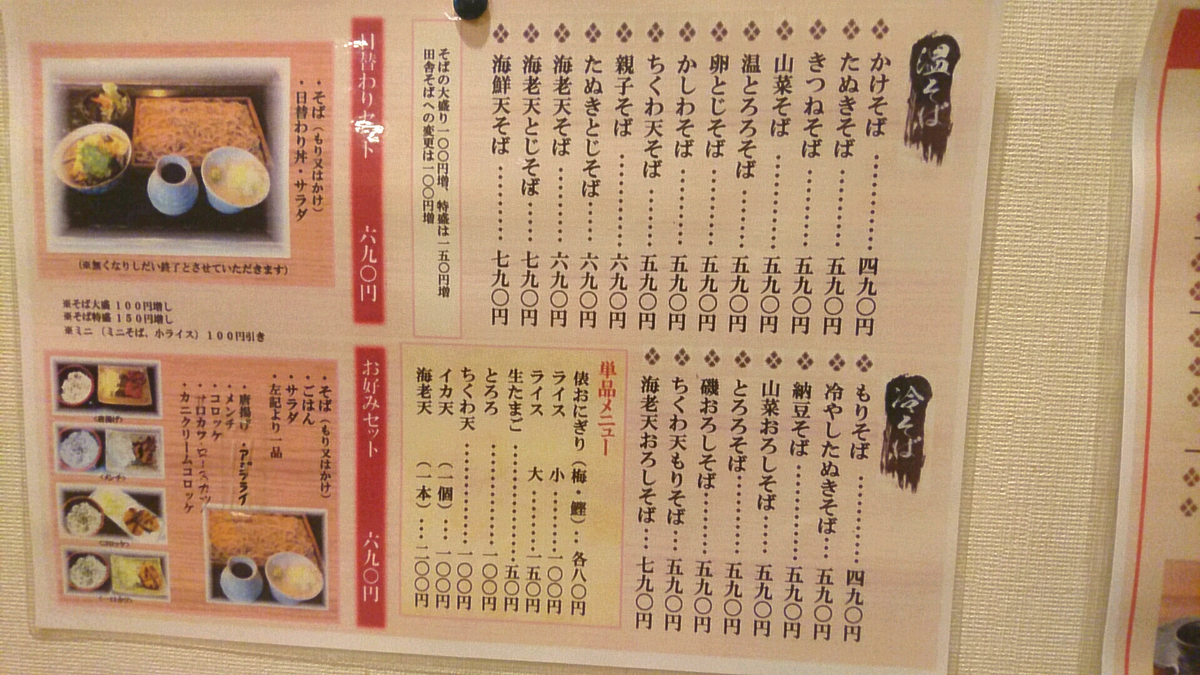 温そば
かけそば…………四九〇円
たぬきそば…………五九〇円
きつねそば…………五九〇円
山菜そば…………五九〇円
温とろろそば…………五九〇円
卵とじそば…………五九〇円
かしわそば…………五九〇円
ちくわ天そば…………五九〇円
親子そば…………六九〇円
たぬきとじそば…………六九〇円
海老天そば…………六九〇円
海老天とじそば…………七九〇円
海鮮天そば…………七九〇円
そばの大盛り一〇〇円増、特盛は一五〇円増
田舎そばへの変更は一〇〇円増
日替わりセット 六九〇円
・そば(もり又はかけ)
・日替わり丼・サラダ
(※無くなりしだい終了とさせていただきます)
※そば大盛 100円増し
※そば特盛 150円増し
※ミニ(ミニそば、小ライス)100円引き
冷そば
もりそば…………四九〇円
冷やしたぬきそば…五九〇円
納豆そば…………五九〇円
山菜おろしそば…………五九〇円
とろろそば…………五九〇円
磯おろしそば…………五九〇円
ちくわ天もりそば…五九〇円
海老天おろしそば…七九〇円
単品メニュー
俵おにぎり(梅・鰹)…各八〇円
ライス 小……一〇〇円
ライス 大……一五〇円
生たまご…………五〇円
とろろ…………一〇〇円
ちくわ天…………一〇〇円
イカ天 (一個)…一〇〇円
海老天 (一本)…二〇〇円
お好みセット 六九〇円
・そば(もり又はかけ)
・ごはん
・サラダ
・左記より一品
・唐揚げ ・アジフライ
・メンチ
・コロッケ
・カニクリームコロッケ
(唐揚げ)
(メンチ)
(コロッケ)